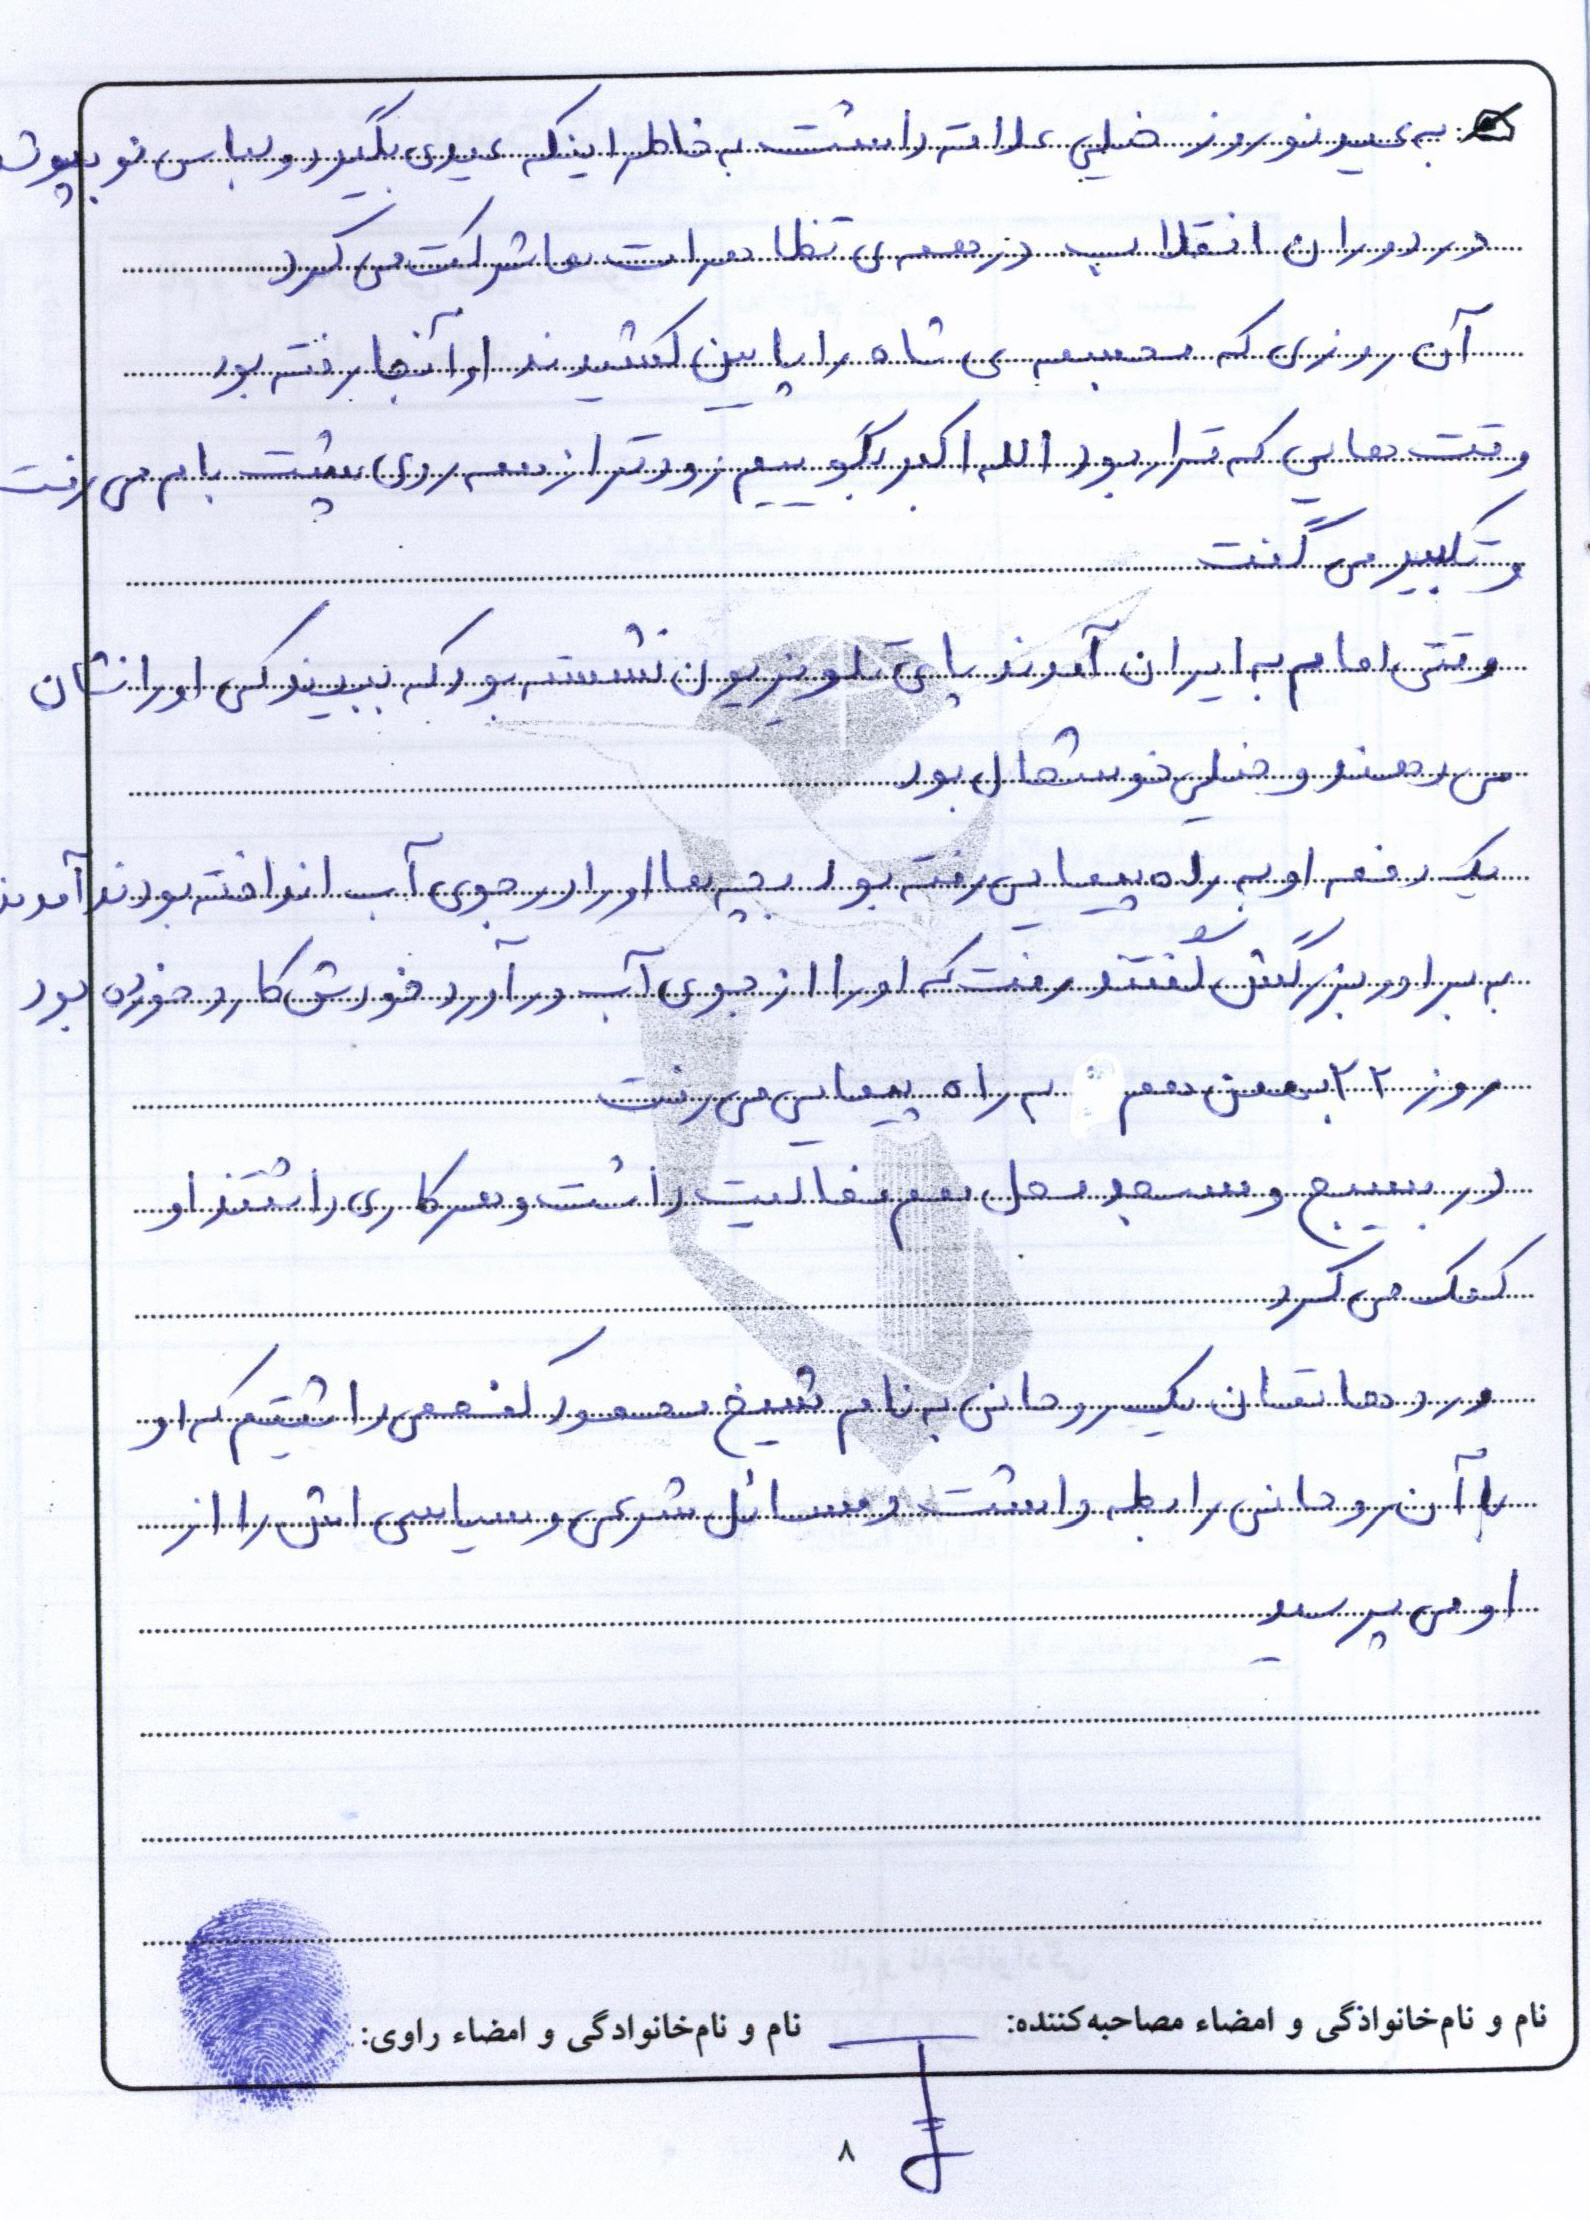 به عید نوروز خیلی علاقه داشت به خاطر اینکه عیدی بگیرد و لباس نو بپوشد
در دوران انقلاب در همه ی تظاهرات ها شرکت می کرد
آن روزی که مجسمه ی شاه را پایین کشیدند او آنجا رفته بود
وقت هایی که قرار بود الله اکبر بگوییم زودتر از همه روی پشت بام می رفت
و تکبیر می گفت
وقتی امام به ایران آمدند پای تلویزیون نشسته بود که ببیند کی او را نشان
می دهند و خیلی خوشحال بود
یک دفعه او به راه پیمایی رفته بود بچه ها او را در جوی آب انداخته بودند آمدند
به برادر بزرگش گفتند رفت که او را از جوی آب در آورد خودش کارد خورده بود
روز ۲۲ بهمن هم به راه پیمایی می رفت
در بسیج و مسجد محل هم فعالیت داشت و هر کاری داشتند او
کمک می کرد
در دهاتمان یک روحانی به نام شیخ محمود داشتیم که او
با آن روحانی رابطه داشت و مسائل شرعی و سیاسی اش را از
او می پرسید
نام و نام‌خانوادگی و امضاء مصاحبه‌کننده: نام و نام‌خانوادگی و امضاء راوی:
۸